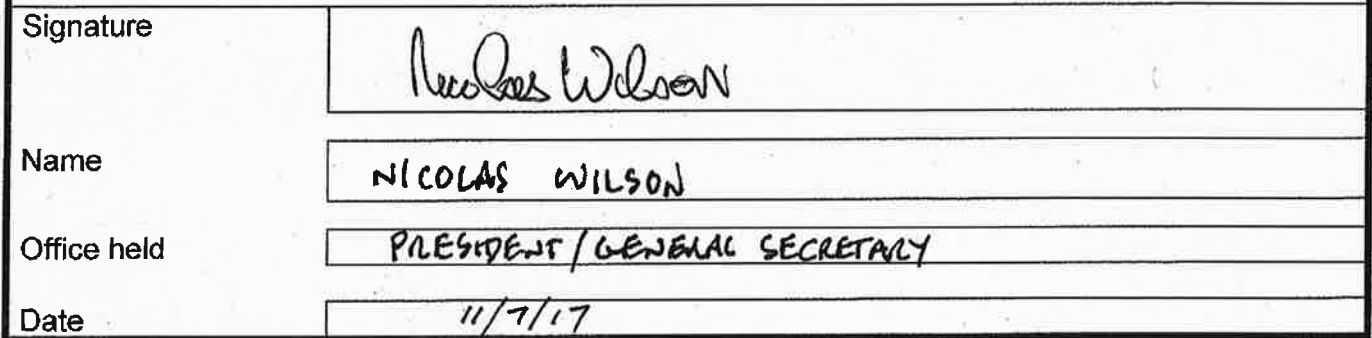 Signature Nicolas Wilson
Name NICOLAS WILSON
Office held PRESIDENT/GENERAL SECRETARY
Date 11/7/17